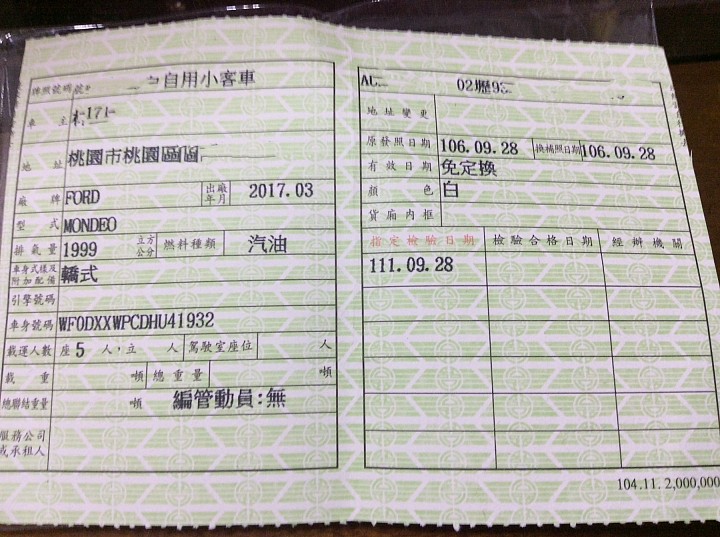 牌照號碼 自用小客車
車主
地址 桃園市桃園區
廠牌 FORD 出廠年月 2017.03
型式 MONDEO
排氣量 1999 立方公分 燃料種類 汽油
車身式樣及附加配備 轎式
引擎號碼
車身號碼 WF0DXXWPCDHU41932
載運人數 座 5 人,立 人 駕駛室座位 人
載重 噸 總重量 噸
總聯結重量 噸 編管動員:無
服務公司或承租人
02壢
地址變更
原發照日期 106.09.28 換補照日期 106.09.28
有效日期 免定換
顏色 白
貨廂內框
指定檢驗日期 檢驗合格日期 經辦機關
111.09.28
104.11. 2,000,000